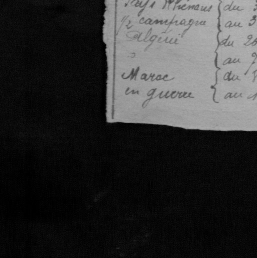 Pays Rhénans { du 3
campagne { au 3
Algérie { du 2
" { au
Maroc { du
en guerre { au 1